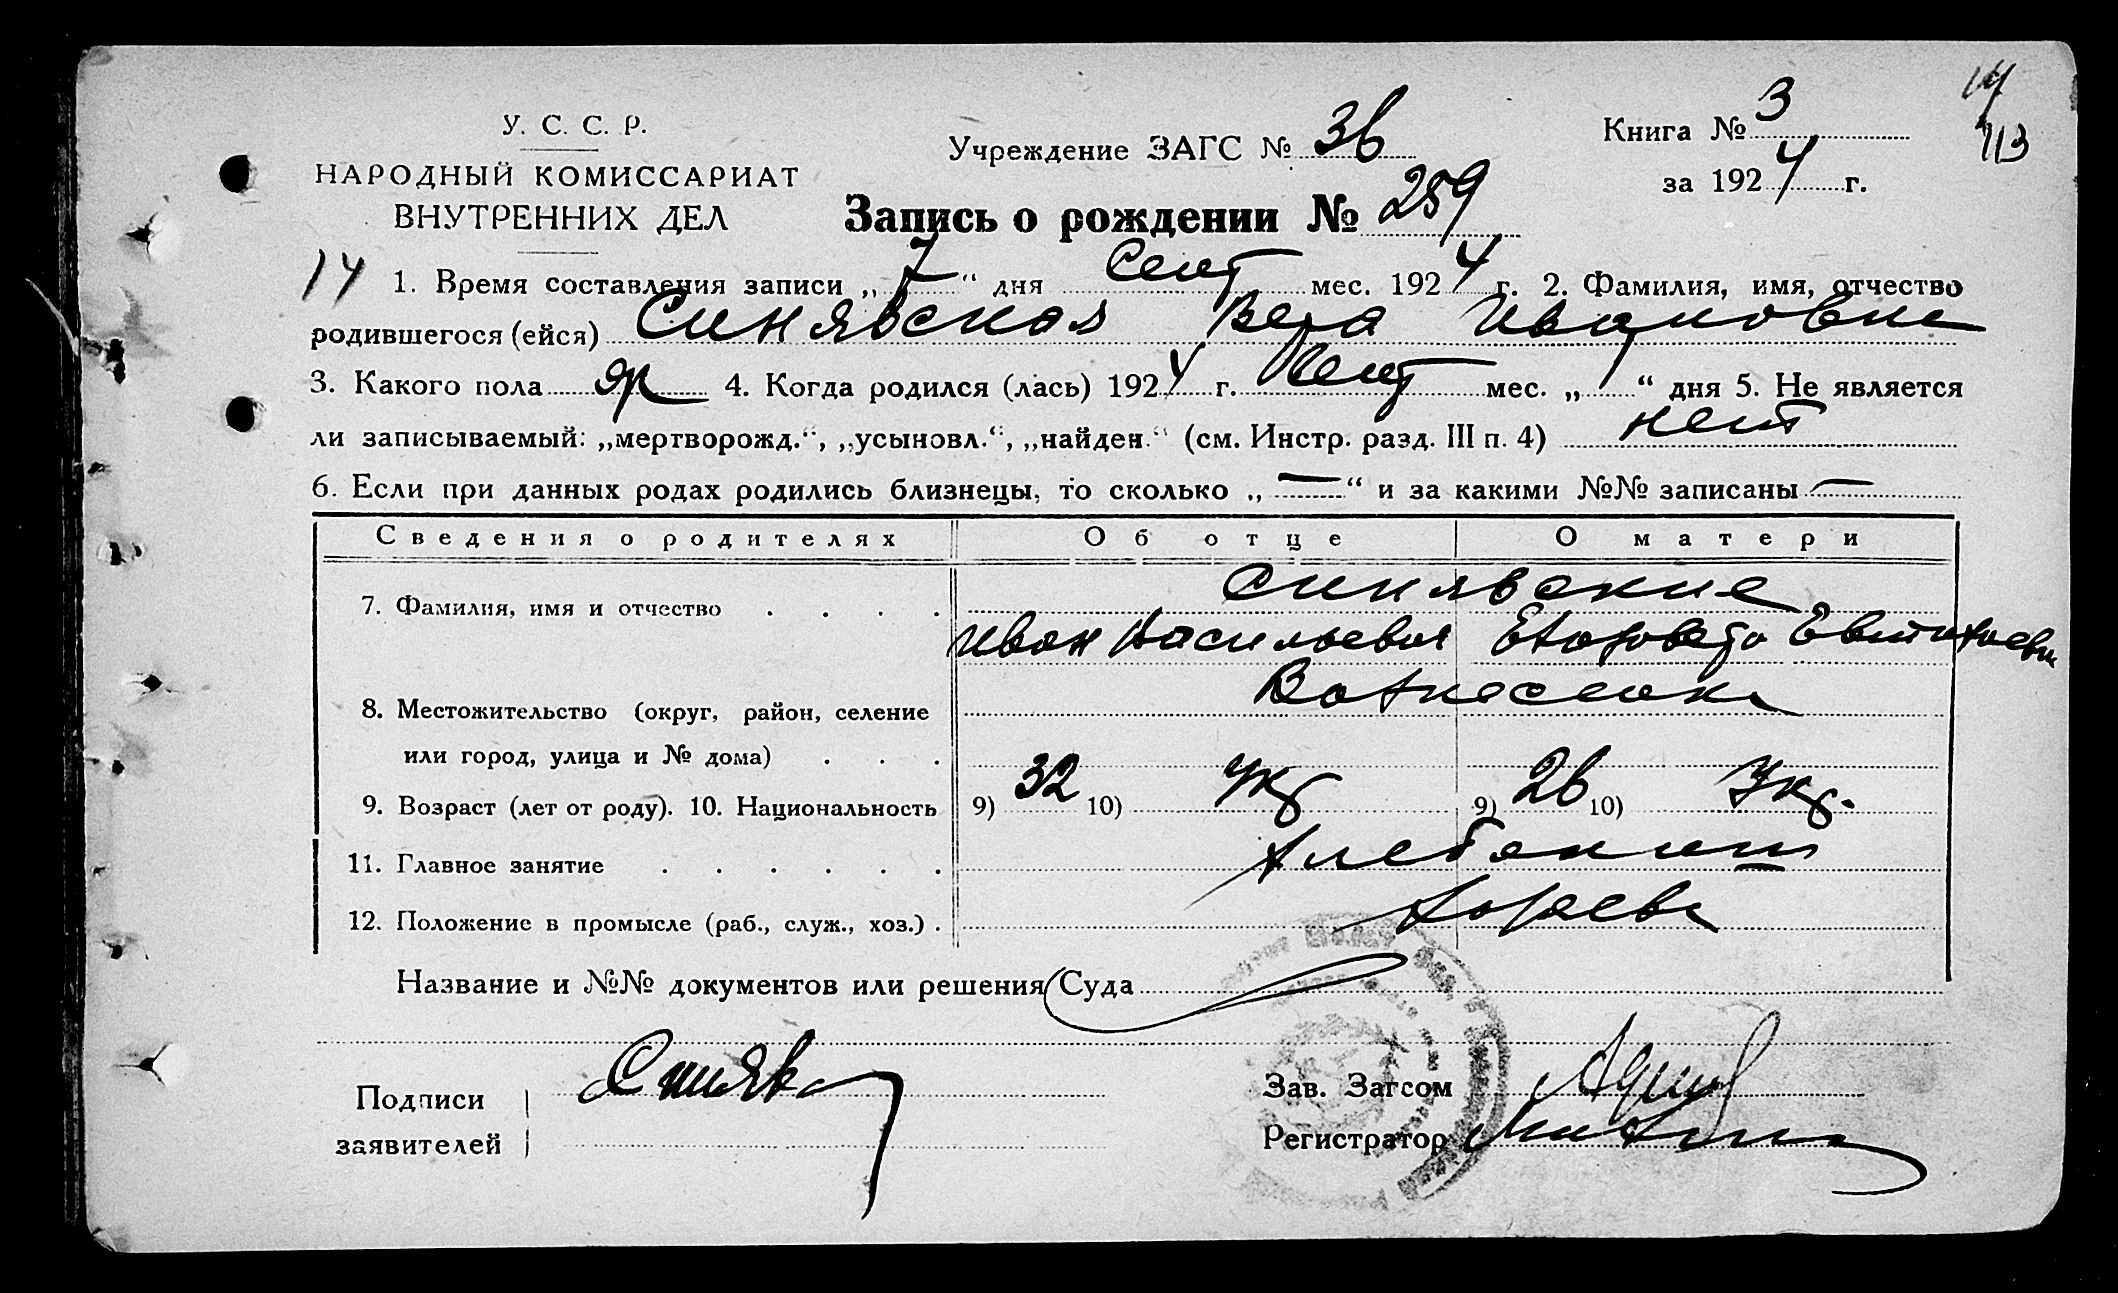 У. С. С. Р.
НАРОДНЫЙ КОМИССАРИАТ
ВНУТРЕННИХ ДЕЛ
Учреждение ЗАГС № 36
Книга № 3
за 1924 г.
113
Запись о рождении № 259
14
1. Время составления записи „7“ дня Сент мес. 1924 г. 2. Фамилия, имя, отчество
родившегося (ейся) Синявская Вера Ивановна
3. Какого пола 4. Когда родился (лась) 1924 г. Сент мес. „1“ дня 5. Не является
ли записываемый: „мертворожд.“, „усыновл.“, „найден.“ (см. Инстр. разд. III п. 4) нет
6. Если при данных родах родились близнецы, то сколько „—“ и за какими №№ записаны —
Сведения о родителях Об отце О матери
7. Фамилия, имя и отчество . . . . Синявские
Иван Васильевич
8. Местожительство (округ, район, селение Вознесенка
или город, улица и № дома) . . .
9. Возраст (лет от роду). 10. Национальность 9) 32 10) Укр 9) 26 10) Укр.
11. Главное занятие . . . . . .
12. Положение в промысле (раб., служ., хоз.) .
Название и №№ документов или решения Суда
Подписи
заявителей
Синявс
Зав. Загсом
Регистратор